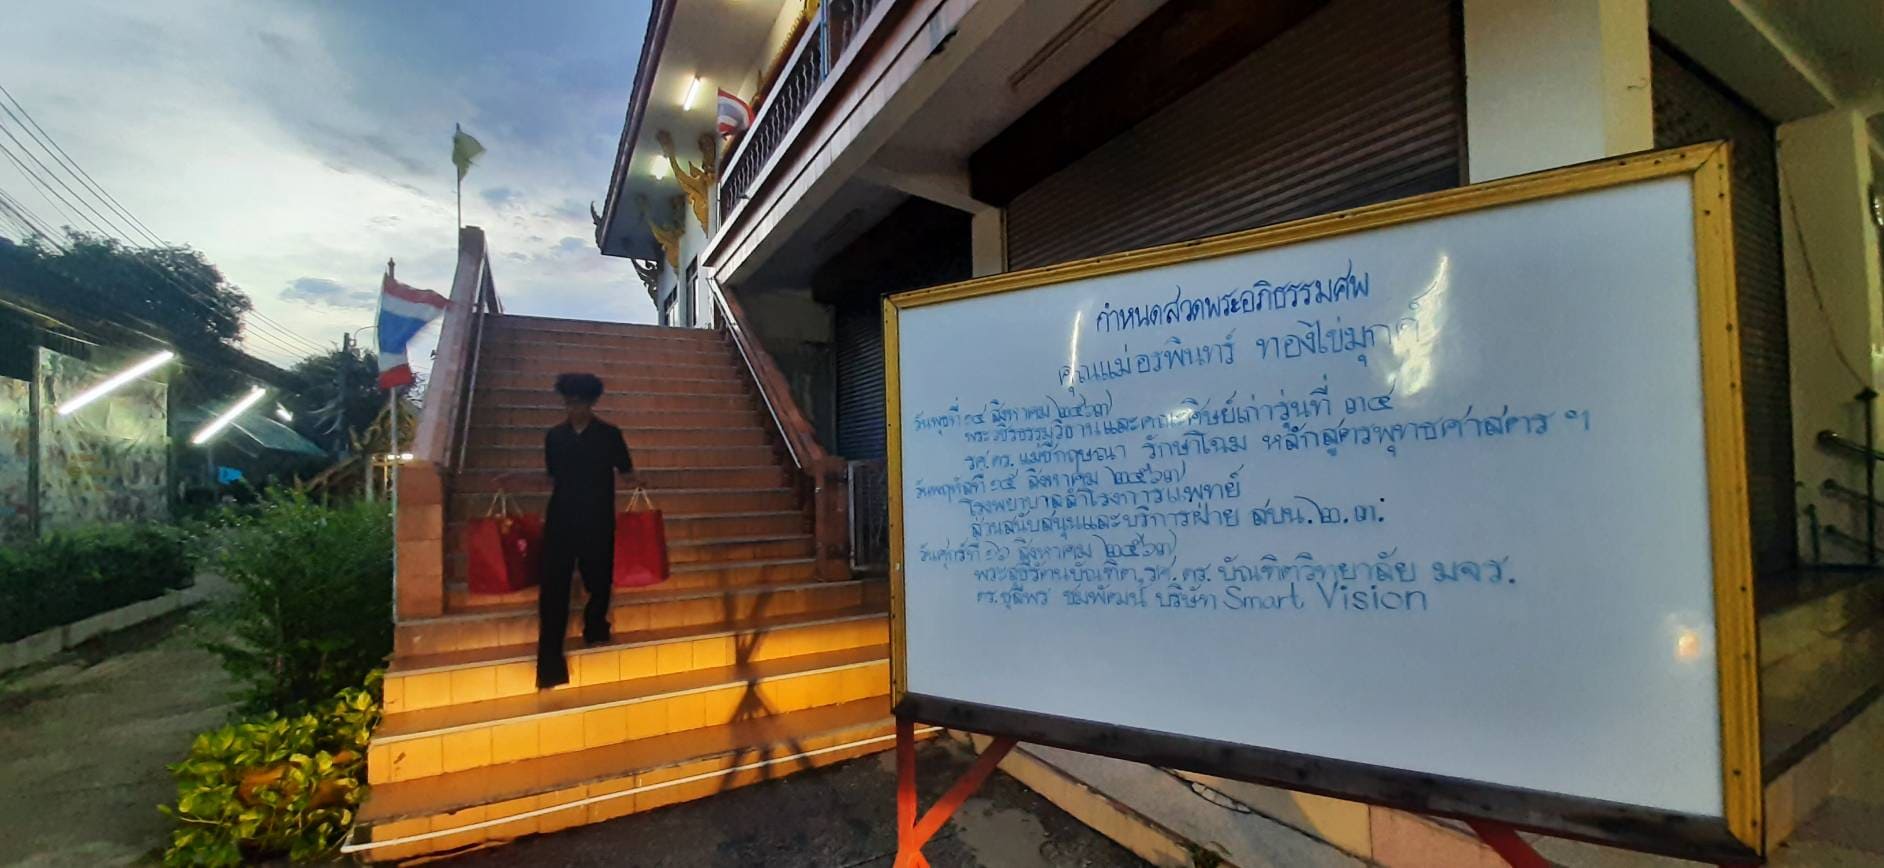 กำหนดสวดพระอภิธรรมศพ
คุณแม่อรพินทร์ ทองไข่มุกต์
วันพุธที่ ๑๔ สิงหาคม ๒๕๖๗
พระวชิรธรรมวิธานและคณะศิษย์เก่ารุ่นที่ ๓๔
รศ.ดร. แม่ชีกฤษณา รักษาโฉม หลักสูตรพุทธศาสตร ฯ
วันพฤหัสที่ ๑๕ สิงหาคม ๒๕๖๗
โรงพยาบาลสำโรงการแพทย์
ส่วนสนับสนุนและบริการฝ่าย สบน.๒.๓.
วันศุกร์ที่ ๑๖ สิงหาคม ๒๕๖๗
พระสุธีรัตนบัณฑิต,รศ.ดร. บัณฑิตวิทยาลัย มจร.
ดร.ชุลีพร ชมพัฒน์ บริษัท Smart Vision